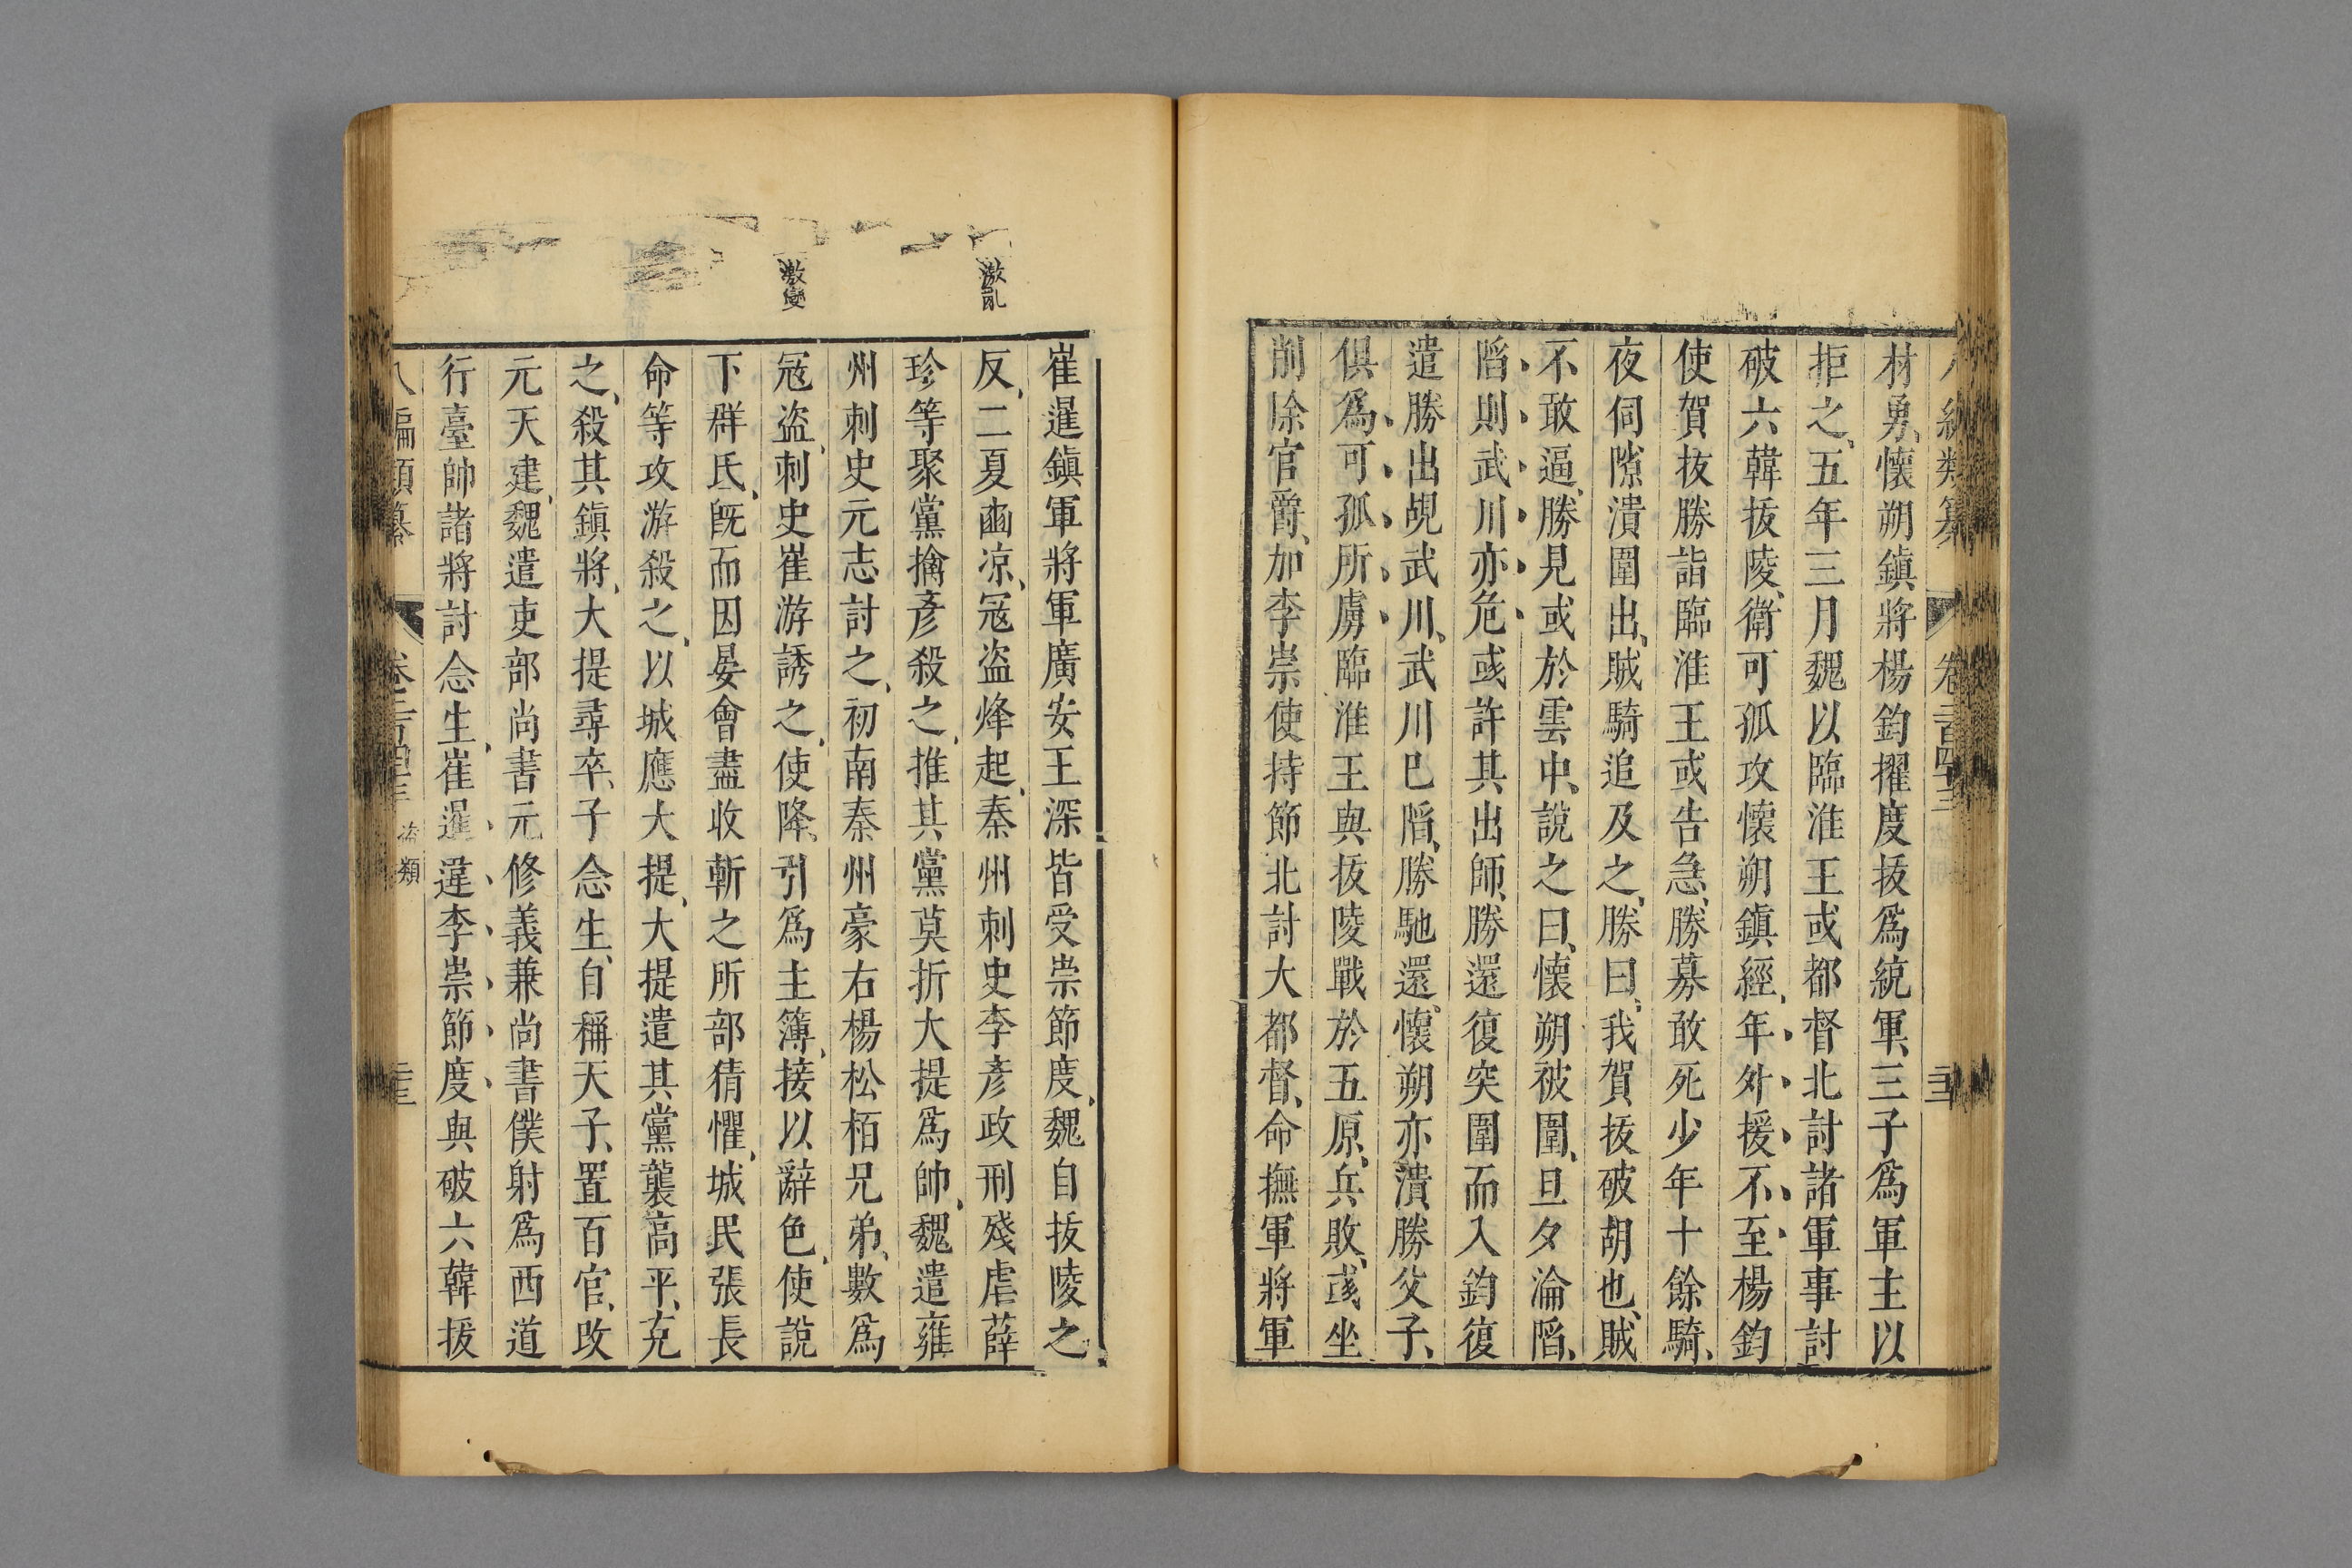 材勇懷朔鎮將楊鈞擢度拔爲統軍三子爲軍主以
拒之五年三月魏以臨淮王或都督北討諸軍事討
破六韓拔陵衛可孤攻懷朔鎮經年外援不至楊鈞
使賀拔勝詣臨淮王或告急勝募敢死少年十餘騎
夜伺隙潰圍出賊騎追及之勝曰我賀拔破胡也賊
不敢逼勝見或於雲中說之曰懷朔被圍旦夕淪陷
陷則武川亦危彧許其出師勝還復突圍而入鈞復
遣勝出覘武川武川巳陷勝馳還懷朔亦潰勝父子
俱爲可孤所虜臨淮王與拔陵戰於五原兵敗彧坐
削除官爵加李崇使持節北討大都督命撫軍將軍
崔暹鎭軍將軍廣安王深皆受崇節度魏自拔陵之
反二夏豳凉冦盗烽起秦州刺史李彥政刑殘虐薛
珍等聚黨擒彥殺之推其黨莫折大提爲帥魏遣雍
州刺史元志討之初南秦州豪右楊松栢兄弟數爲
冦盗刺史崔游誘之使降引爲主簿接以辭色使說
下群氐旣而因晏會盡收斬之所部猜懼城民張長
命等攻游殺之以城應大提大提遣其黨襲高平克
之殺其鎭將大提尋卒子念生自稱天子置百官改
元天建魏遣吏部尚書元修義兼尚書僕射爲西道
行臺帥諸將討念生崔暹違李崇節度與破六韓拔
編類纂
類
激亂
激變